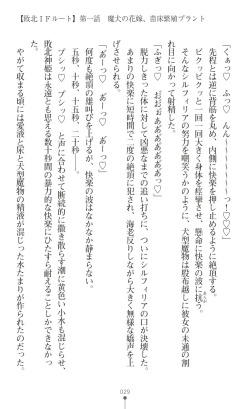 【敗北IFルート】第一話　魔犬の花嫁、苗床繁殖プラント
「くぁっ♡　ふっ♡　んん～～～～～～～～っ！♡♡」
先程とは逆に背筋を丸め、内側に快楽を押し止めるように絶頂する。
ビクッビクッと一回一回大きく身体を痙攣させ、懸命に快楽の波に抗う。
そんなシルフィリアの努力を嘲笑うかのように、犬型魔物は股布越しに彼女の未通の割
れ目に向かって射精した。
「ふぎっ♡　おおぉぁああああああっ♡♡」
脱力しきった体に対して凶悪なまでの追い打ちに、ついにシルフィリアの口が決壊した。
あまりの快楽に短時間で二度の絶頂に犯され、海老反りしながら大きく無様な嬌声を上
げさせられる。
「あーっ♡　あーっ♡　あーっ♡」
何度も絶頂の雄叫びを上げるが、快楽の波はなかなか静まらない。
五秒、十秒、十五秒、二十秒……。
プシッ♡　プシッ♡　と声に合わせて断続的に撒き散らす潮に黄色い小水も混じらせ、
敗北神姫は永遠とも思える数十秒間の暴力的な快楽にひたすら耐えることしかできない。
やがて収まる頃には愛液と尿と犬型魔物の精液が混じった水たまりが作られたのだった。
029